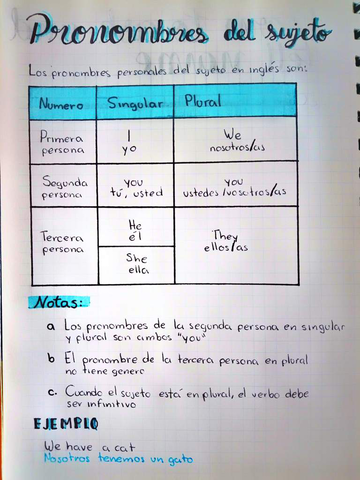 Pronombres del sujeto
Los pronombres personales del sujeto en inglés son:
Numero Singular Plural
Primera persona
I
yo
We
nosotros/as
Segunda persona
you
tú, usted
you
ustedes/vosotros/as
Tercera persona
He
él
She
ella
They
ellos/as
Notas:
a Los pronombres de la segunda persona en singular
y plural son ambos "you"
b El pronombre de la tercera persona en plural
no tiene genero
c. Cuando el sujeto está en plural, el verbo debe
ser infinitivo
EJEMPLO
We have a cat
Nosotros tenemos un gato